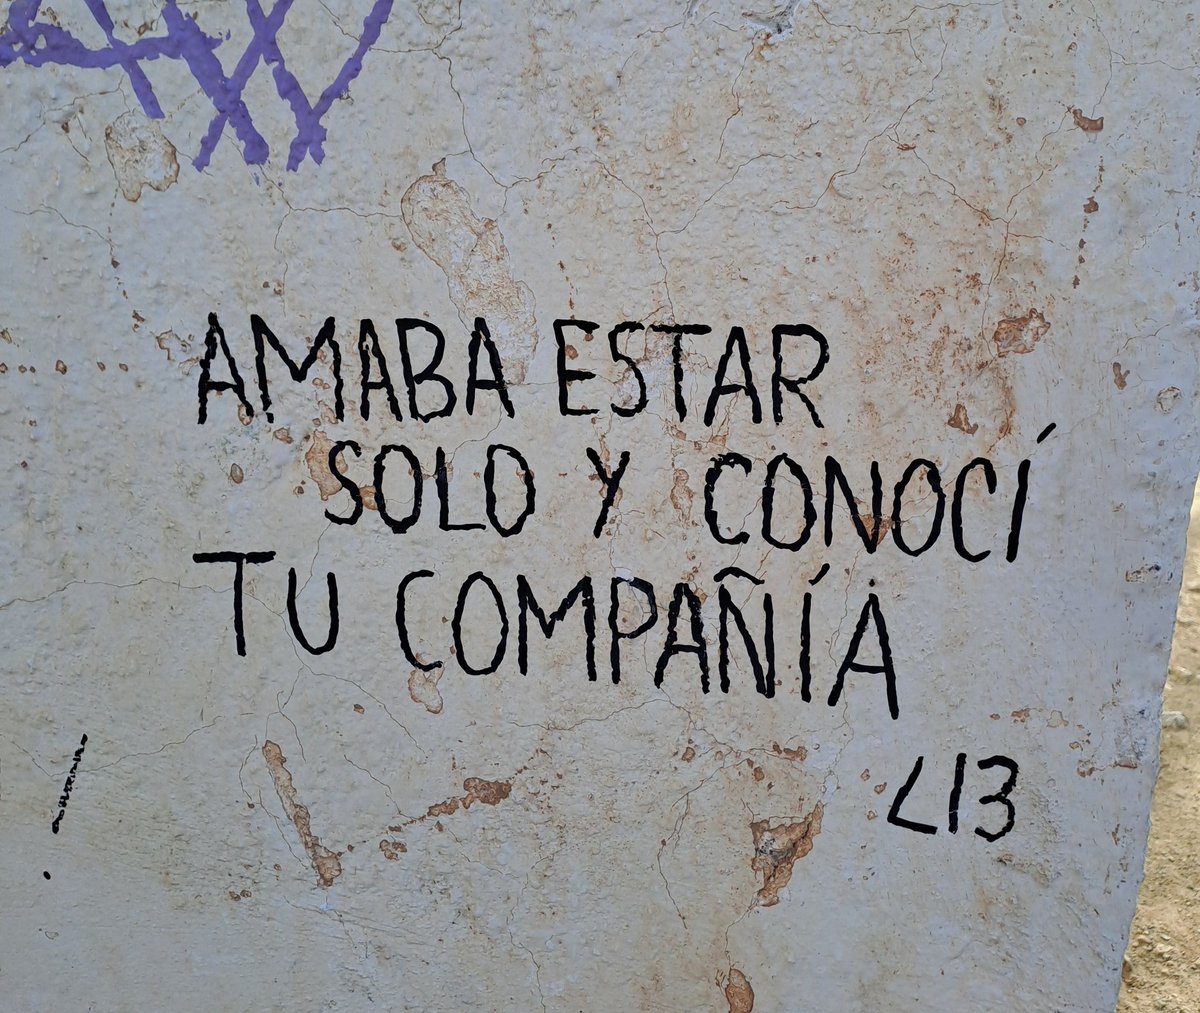 AMABA ESTAR
SOLO Y CONOCÍ
TU COMPAÑÍA